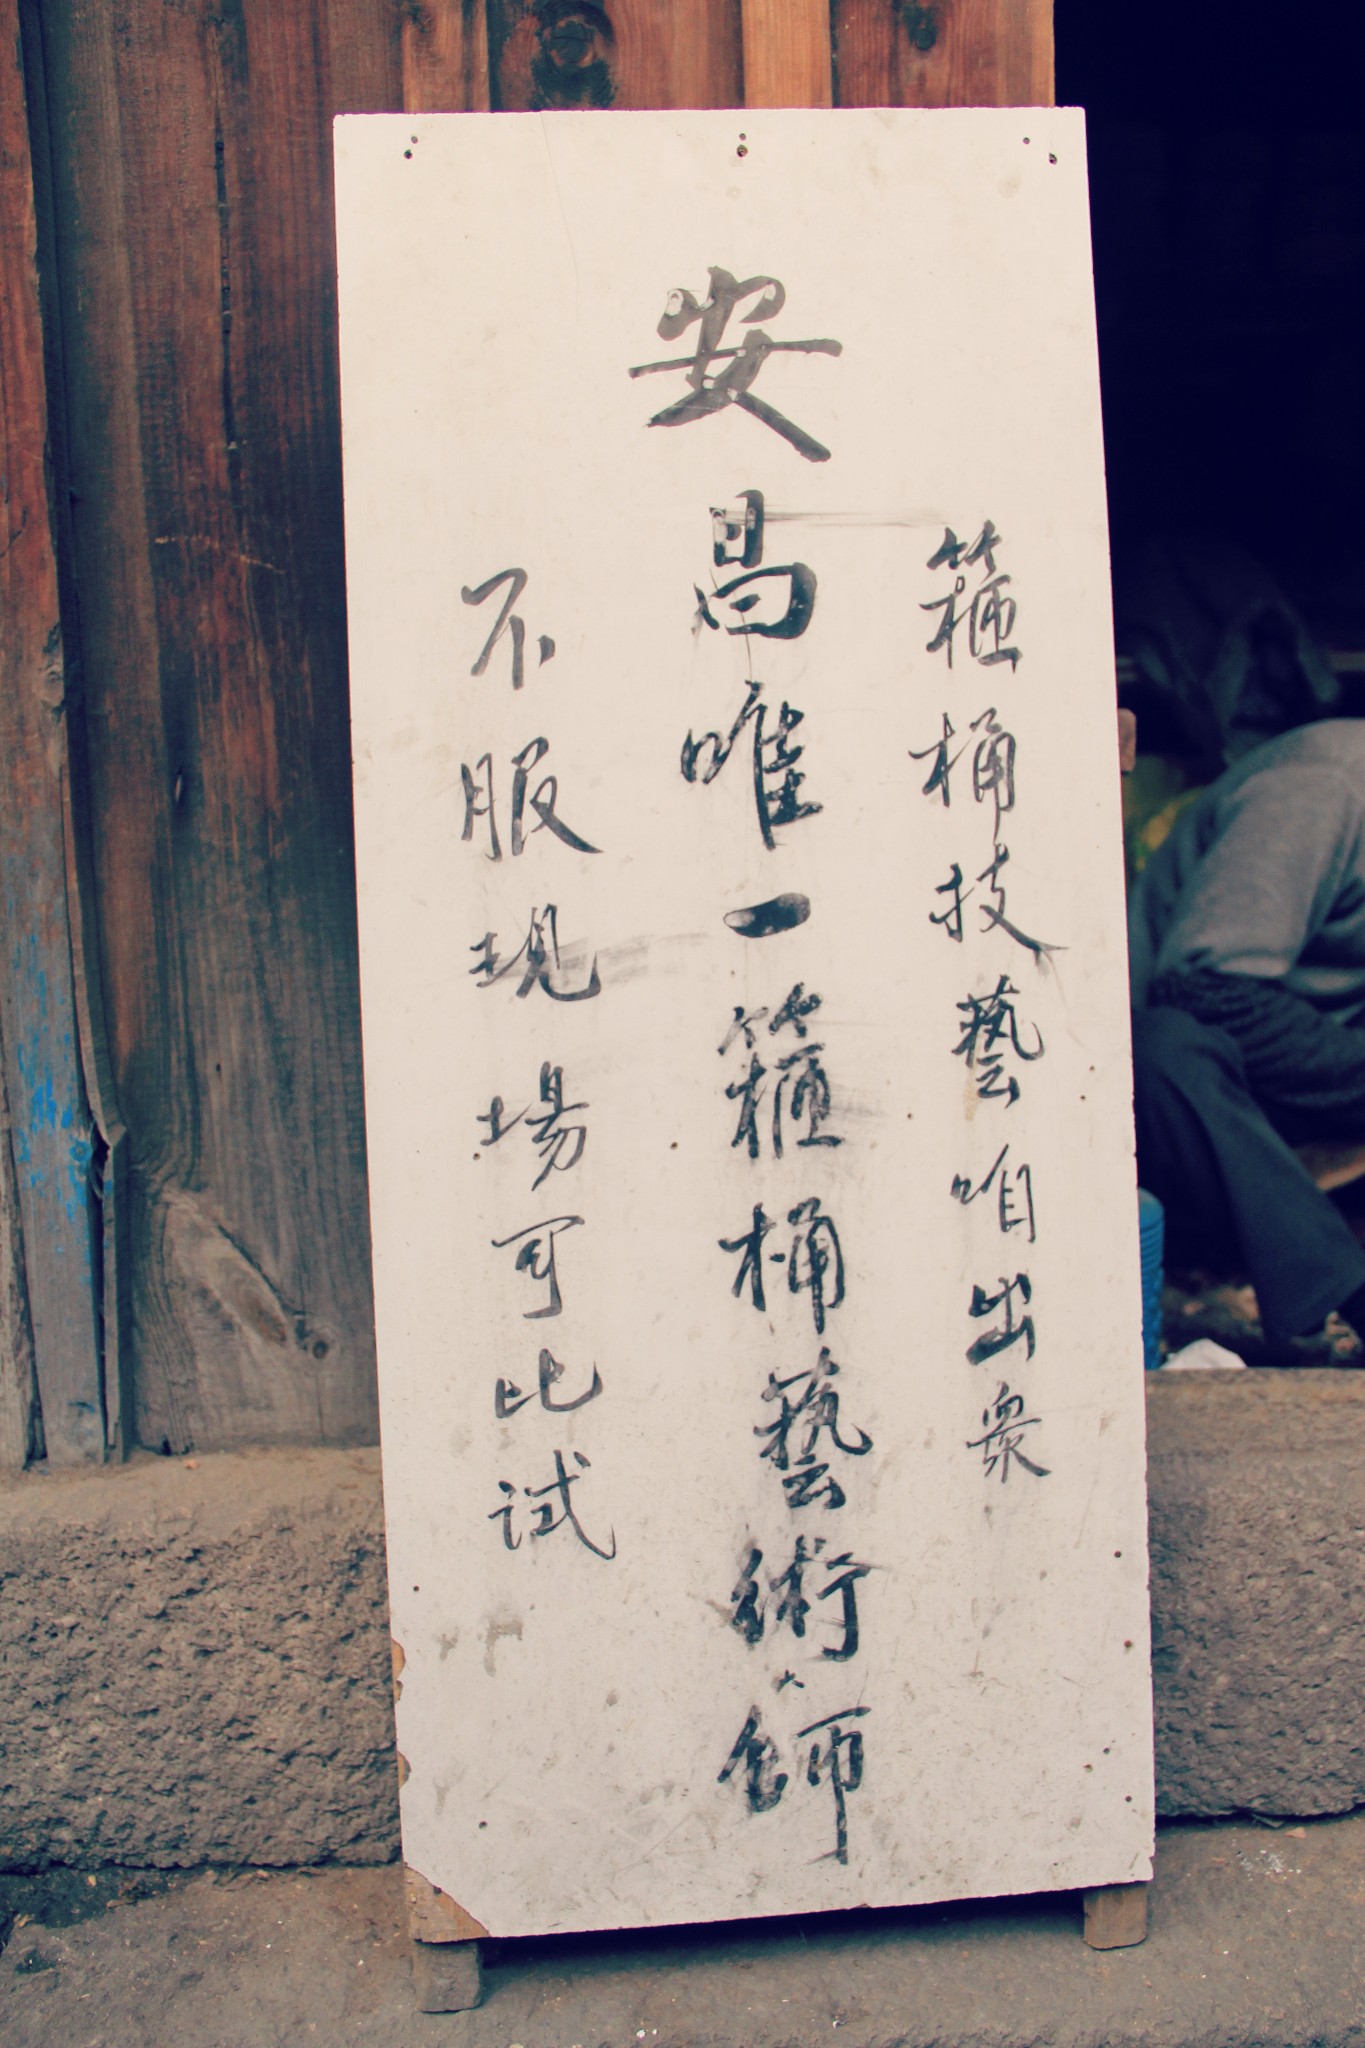 箍桶技藝咱出眾
安昌唯一箍桶藝術大師
不服現場可比试